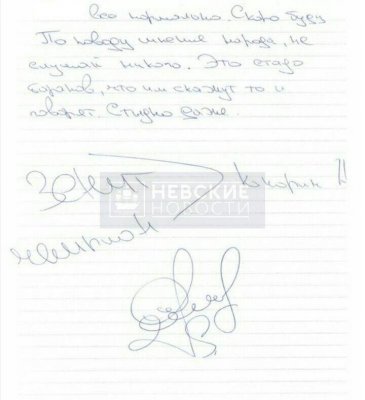 все нормально. Скоро буду
По поводу мнение народа, не
слушай никого. Это стадо
баранов, что им скажут то и
говорят. Стыдно даже.
Зенит
Кокорин !!
НЕВСКИЕ
НОВОСТИ
чемпион